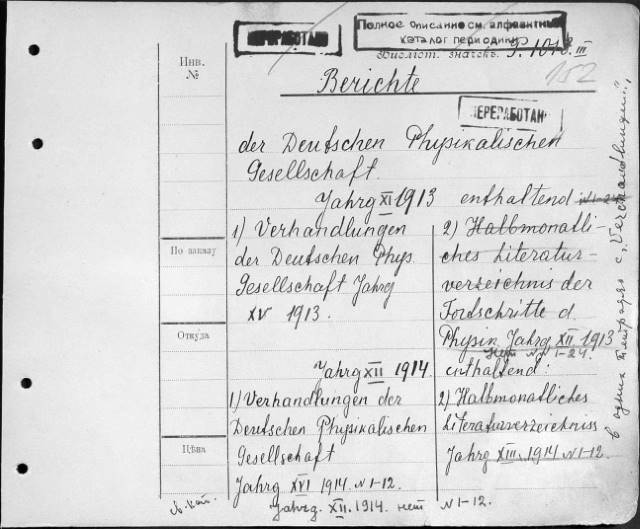 ПЕРЕРАБОТАНО
Полное описание см. алфавитный
каталог периодики
Библіот. значекъ 9.1013 III
152
Инв.
№
Berichte
ПЕРЕРАБОТАНО
der Deutschen Physikalischen
Gesellschaft.
Jahrg XI 1913 enthaltend N 1-24
1) Verhandlungen
der Deutschen Phys.
Gesellschaft Jahrg
XV 1913.
2) Halbmonatli-
ches Literatur-
verzeichnis der
Fordschritte d.
Physik Jahrg XII 1913
Нет N N 1-24.
По заказу
Откуда
Цѣна
Jahrg XII 1914. enthaltend:
1) Verhandlungen der
Deutschen Physikalischen
Gesellschaft
Jahrg XVI 1914 N 1-12.
2) Halbmonatliches
Literaturverzeichniss
Jahrg XIII 1914 N 1-12.
Jahrg. XII. 1914. нет N 1-12.
в одних тетрадях с „Verhandlungen“,